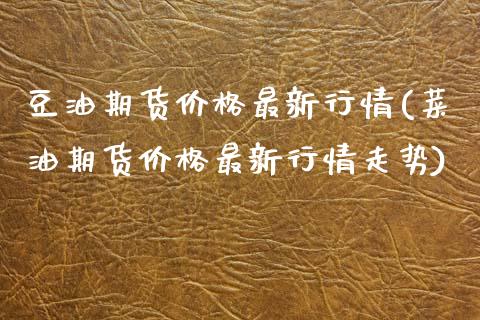 豆油期货价格最新行情(菜
油期货价格最新行情走势)